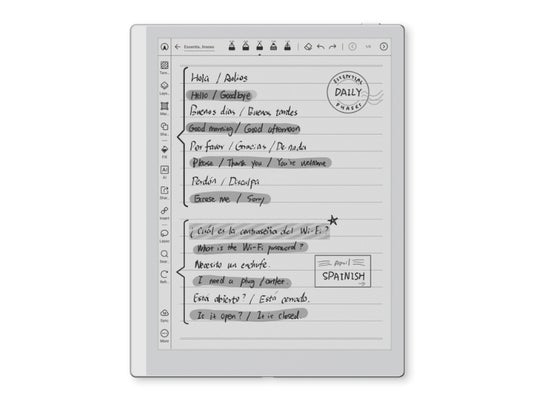 Essential_phrases
1/5
Hola / Adiós
Hello / Goodbye
Buenos días / Buenas tardes
Good morning / Good afternoon
Por favor / Gracias / De nada
Please / Thank you / You're welcome
Perdón / Disculpa
Excuse me / Sorry
ESSENTIAL
DAILY
PHRASES
¿Cuál es la contraseña del Wi-Fi?
What is the Wi-Fi password?
Necesito un enchufe.
I need a plug/outlet.
Está abierto? / Está cerrado.
Is it open? / It is closed.
SPANISH
Fill
AI
Insert
Lasso
Sync
More